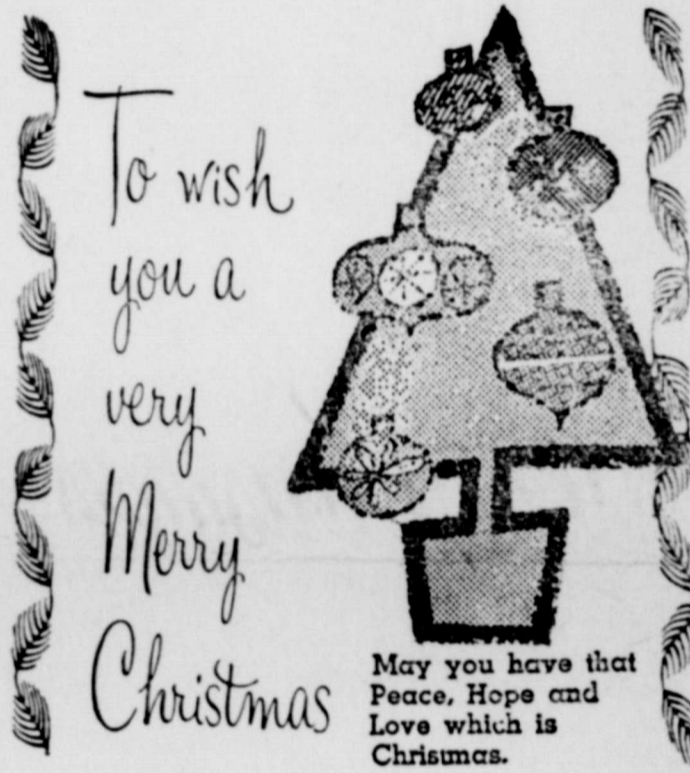 To wish
you a
very
Merry
Christmas
May you have that
Peace, Hope and
Love which is
Christmas.